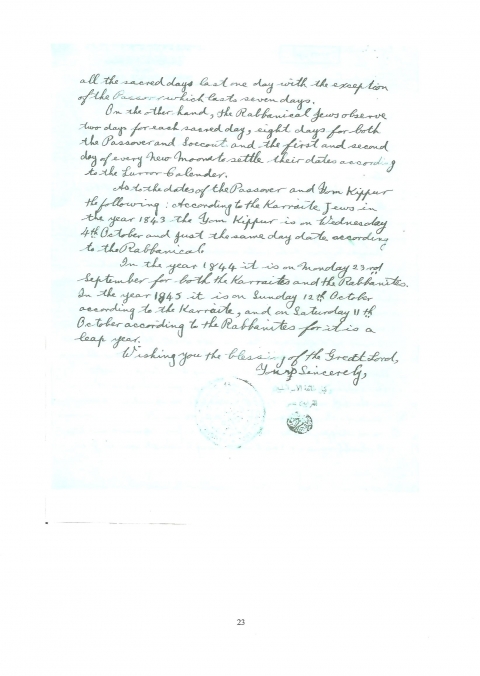 all the sacred days last one day with the exception
of the Passover which lasts seven days.
On the other hand, the Rabbanical Jews observe
two days for each sacred day, eight days for both
the Passover and Soccout and the first and second
day of every New Moon to settle their dates according
to the Lunar Calender.
As to the dates of the Passover and Yom Kippur
the following: According to the Karraite Jews in
the year 1843 the Yom Kippur is on Wednesday
4th October and just the same day date according
to the Rabbanical
In the year 1844 it is on Monday 23rd
September for both the Karraites and the Rabbanites.
In the year 1845 it is on Sunday 12th October
according to the Karraite, and on Saturday 11th
October according to the Rabbanites for it is a
leap year.
Wishing you the blessing of the Great Lord,
Yours Sincerely,
23